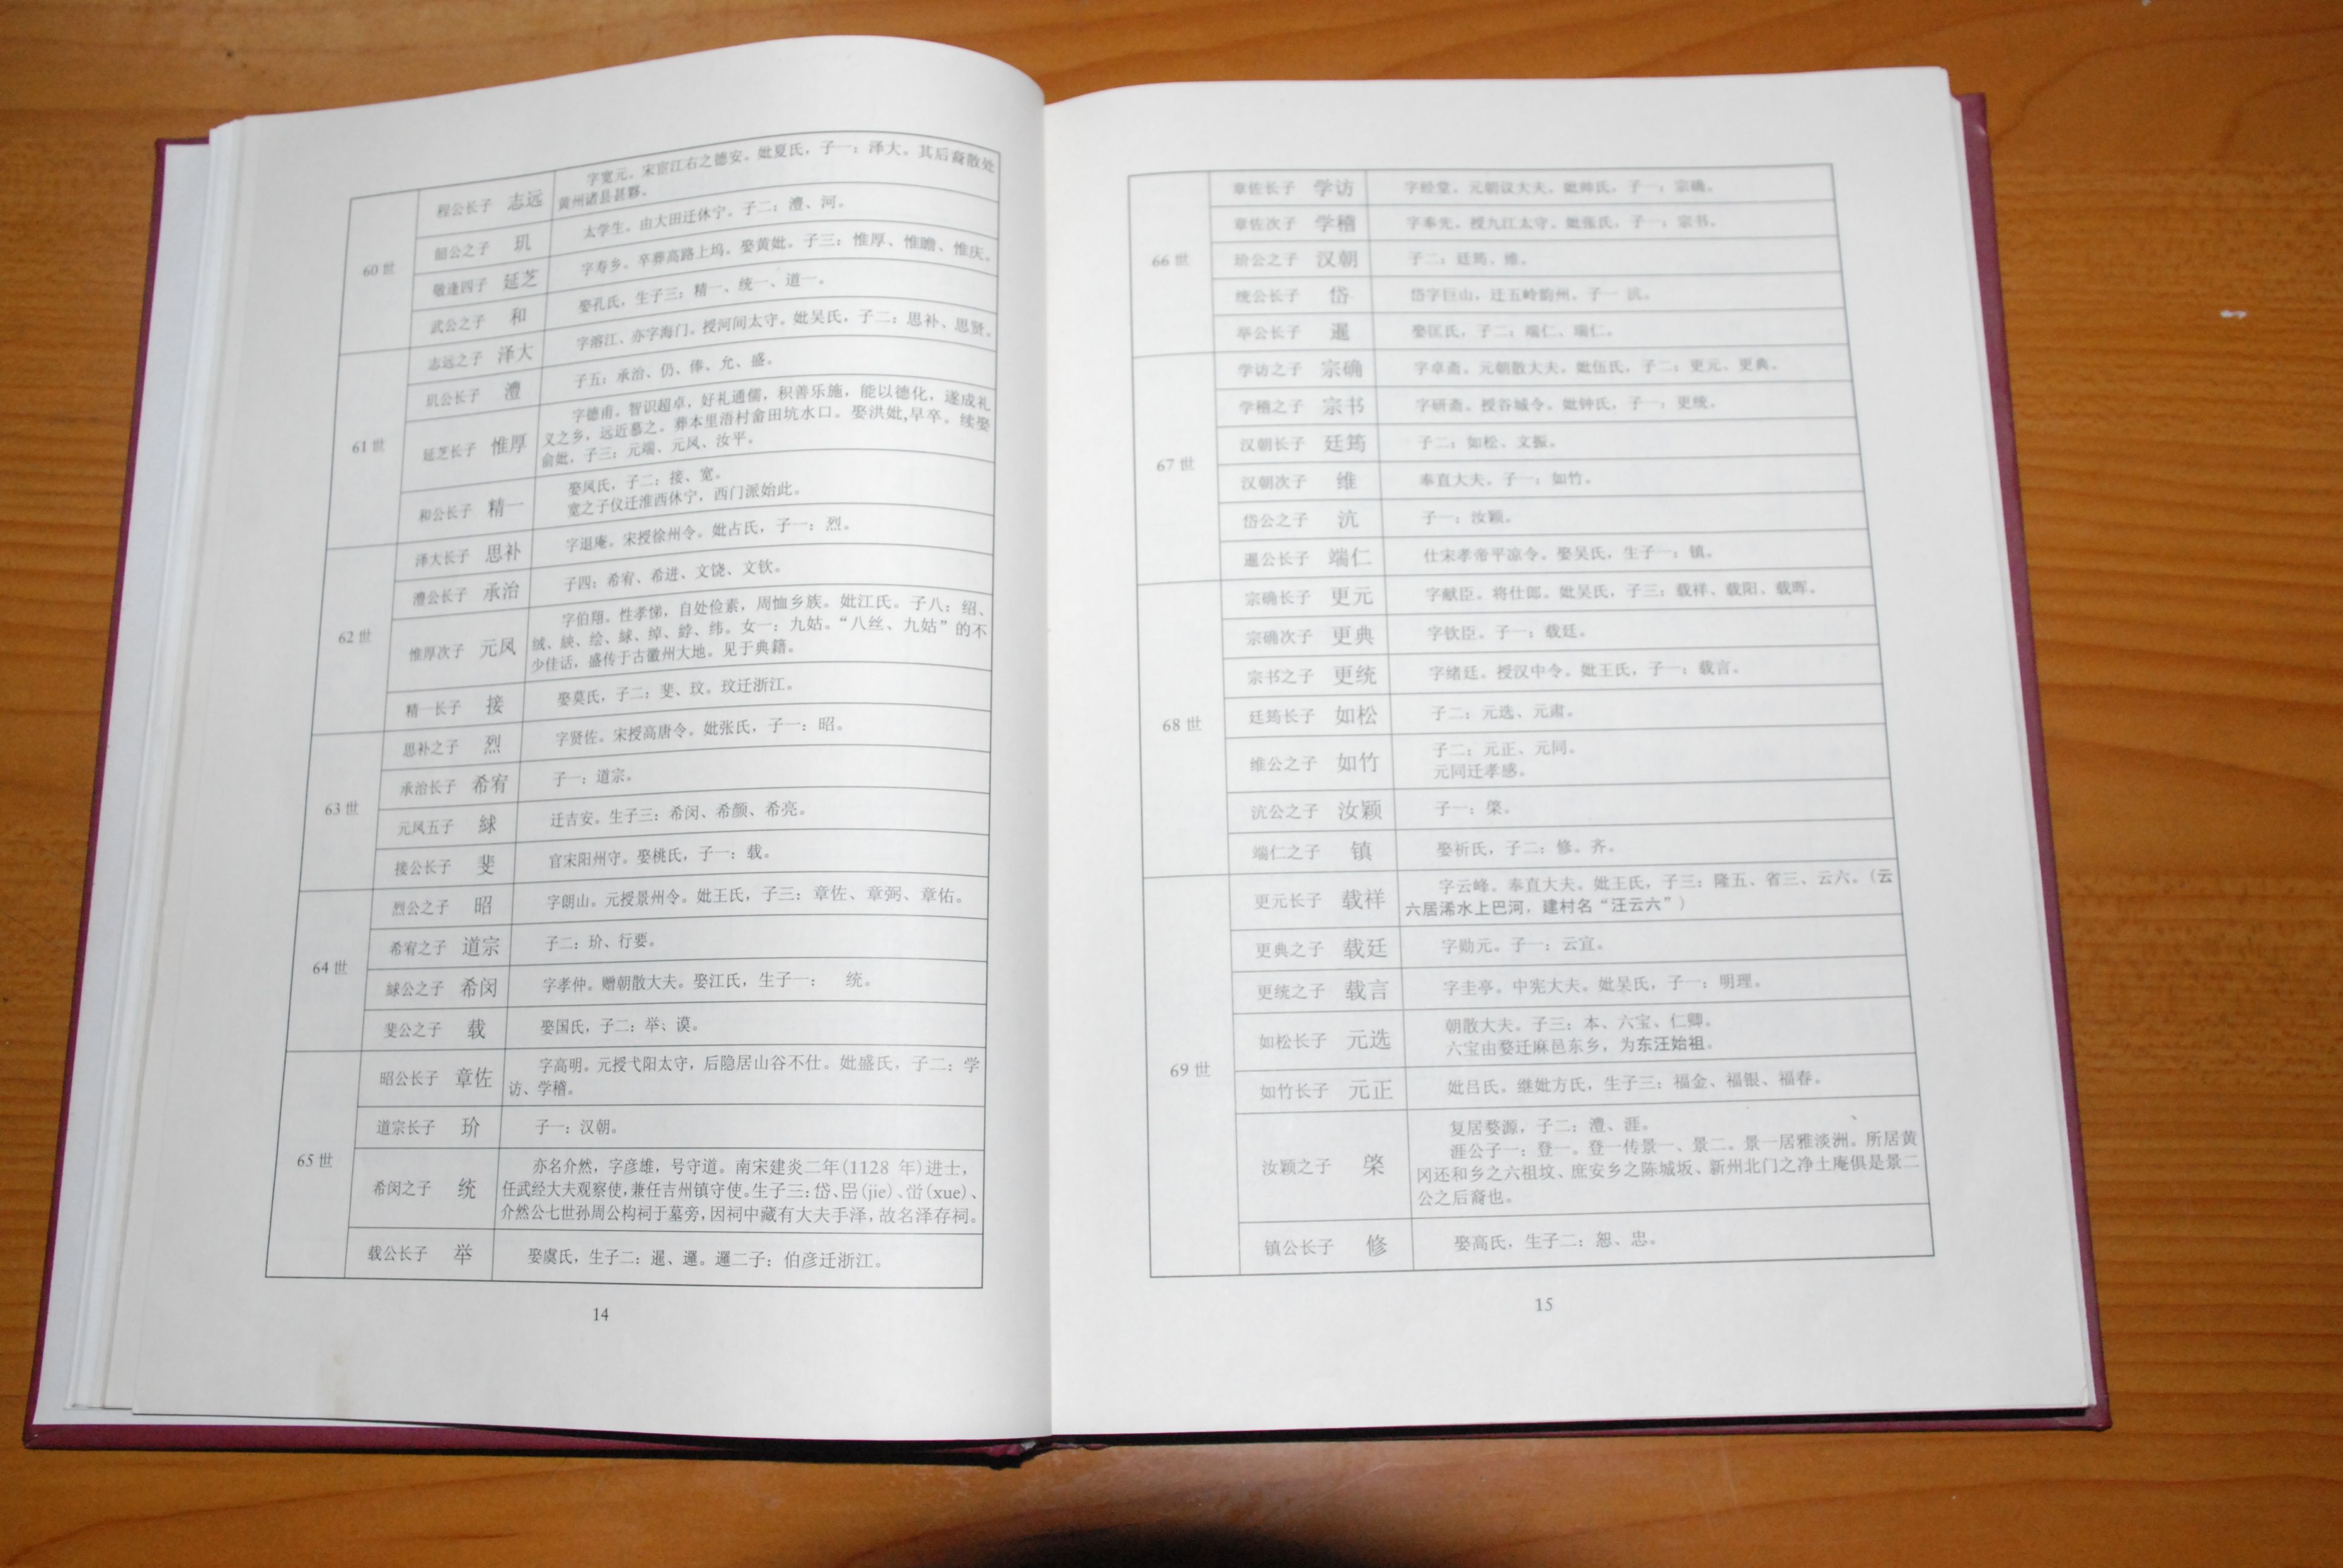 60世
程公长子 志远 字宽元。宋宦江右之德安。妣夏氏，子一：泽大。其后裔散处
黄州诸县甚夥。
韶公之子 玑 太学生。由大田迁休宁。子二：澧、河。
敬逢四子 延芝 字寿乡。卒葬高路上坞。娶黄妣。子三：惟厚、惟瞻、惟庆。
武公之子 和 娶孔氏，生子三：精一、统一、道一。
61世
志远之子 泽大 字溶江、亦字海门。授河间太守。妣吴氏，子二：思补、思贤。
玑公长子 澧 子五：承治、仍、俸、允、盛。
延芝长子 惟厚 字德甫。智识超卓，好礼通儒，积善乐施，能以德化，遂成礼
义之乡，远近慕之。葬本里浯村畲田坑水口。娶洪妣,早卒。续娶
俞妣，子三：元端、元凤、汝平。
和公长子 精一 娶凤氏，子二：接、宽。
宽之子仪迁淮西休宁，西门派始此。
62世
泽大长子 思补 字退庵。宋授徐州令。妣占氏，子一：烈。
澧公长子 承治 子四：希宥、希进、文饶、文钦。
惟厚次子 元凤 字伯翔。性孝悌，自处俭素，周恤乡族。妣江氏。子八：绍、
绒、紻、绘、絿、绰、綍、纬。女一：九姑。“八丝、九姑”的不
少佳话，盛传于古徽州大地。见于典籍。
精一长子 接 娶莫氏，子二：斐、玟。玟迁浙江。
63世
思补之子 烈 字贤佐。宋授高唐令。妣张氏，子一：昭。
承治长子 希宥 子一：道宗。
元凤五子 絿 迁吉安。生子三：希闵、希颜、希亮。
接公长子 斐 官宋阳州守。娶桃氏，子一：载。
64世
烈公之子 昭 字朗山。元授景州令。妣王氏，子三：章佐、章弼、章佑。
希宥之子 道宗 子二：玠、行要。
絿公之子 希闵 字孝仲。赠朝散大夫。娶江氏，生子一： 统。
斐公之子 载 娶国氏，子二：举、谟。
65世
昭公长子 章佐 字高明。元授弋阳太守，后隐居山谷不仕。妣盛氏，子二：学
访、学稽。
道宗长子 玠 子一：汉朝。
希闵之子 统 亦名介然，字彦雄，号守道。南宋建炎二年(1128 年)进士，
任武经大夫观察使，兼任吉州镇守使。生子三：岱、(jie)、(xue)、
介然公七世孙周公构祠于墓旁，因祠中藏有大夫手泽，故名泽存祠。
载公长子 举 娶虞氏，生子二：暹、邏。邏二子：伯彦迁浙江。
14
66世
章佐长子 学访 字经堂。元朝议大夫。妣帅氏，子一：宗确。
章佐次子 学稽 字奉先。授九江太守。妣张氏，子一：宗书。
玠公之子 汉朝 子二：廷筠、维。
统公长子 岱 岱字巨山，迁五岭韵州。子一 沆。
举公长子 暹 娶匡氏，子二：端仁、瑞仁。
67世
学访之子 宗确 字卓斋。元朝散大夫。妣伍氏，子二：更元、更典。
学稽之子 宗书 字研斋。授谷城令。妣钟氏，子一：更统。
汉朝长子 廷筠 子二：如松、文振。
汉朝次子 维 奉直大夫。子一：如竹。
岱公之子 沆 子一：汝颖。
暹公长子 端仁 仕宋孝帝平凉令。娶吴氏，生子一：镇。
68世
宗确长子 更元 字献臣。将仕郎。妣吴氏，子三：载祥、载阳、载晖。
宗确次子 更典 字钦臣。子一：载廷。
宗书之子 更统 字绪廷。授汉中令。妣王氏，子一：载言。
廷筠长子 如松 子二：元选、元肃。
维公之子 如竹 子二：元正、元同。
元同迁孝感。
沆公之子 汝颖 子一：棨。
端仁之子 镇 娶祈氏，子二：修。齐。
69世
更元长子 载祥 字云峰。奉直大夫。妣王氏，子三：隆五、省三、云六。（云
六居浠水上巴河，建村名“汪云六”）
更典之子 载廷 字勋元。子一：云宜。
更统之子 载言 字圭亭。中宪大夫。妣吴氏，子一：明理。
如松长子 元选 朝散大夫。子三：本、六宝、仁卿。
六宝由婺迁麻邑东乡，为东汪始祖。
如竹长子 元正 妣吕氏。继妣方氏，生子三：福金、福银、福春。
汝颖之子 棨 复居婺源，子二：澧、涯。
涯公子一：登一。登一传景一、景二。景一居雅淡洲。所居黄
冈还和乡之六祖坟、庶安乡之陈城坂、新州北门之净土庵俱是景二
公之后裔也。
镇公长子 修 娶高氏，生子二：恕、忠。
15